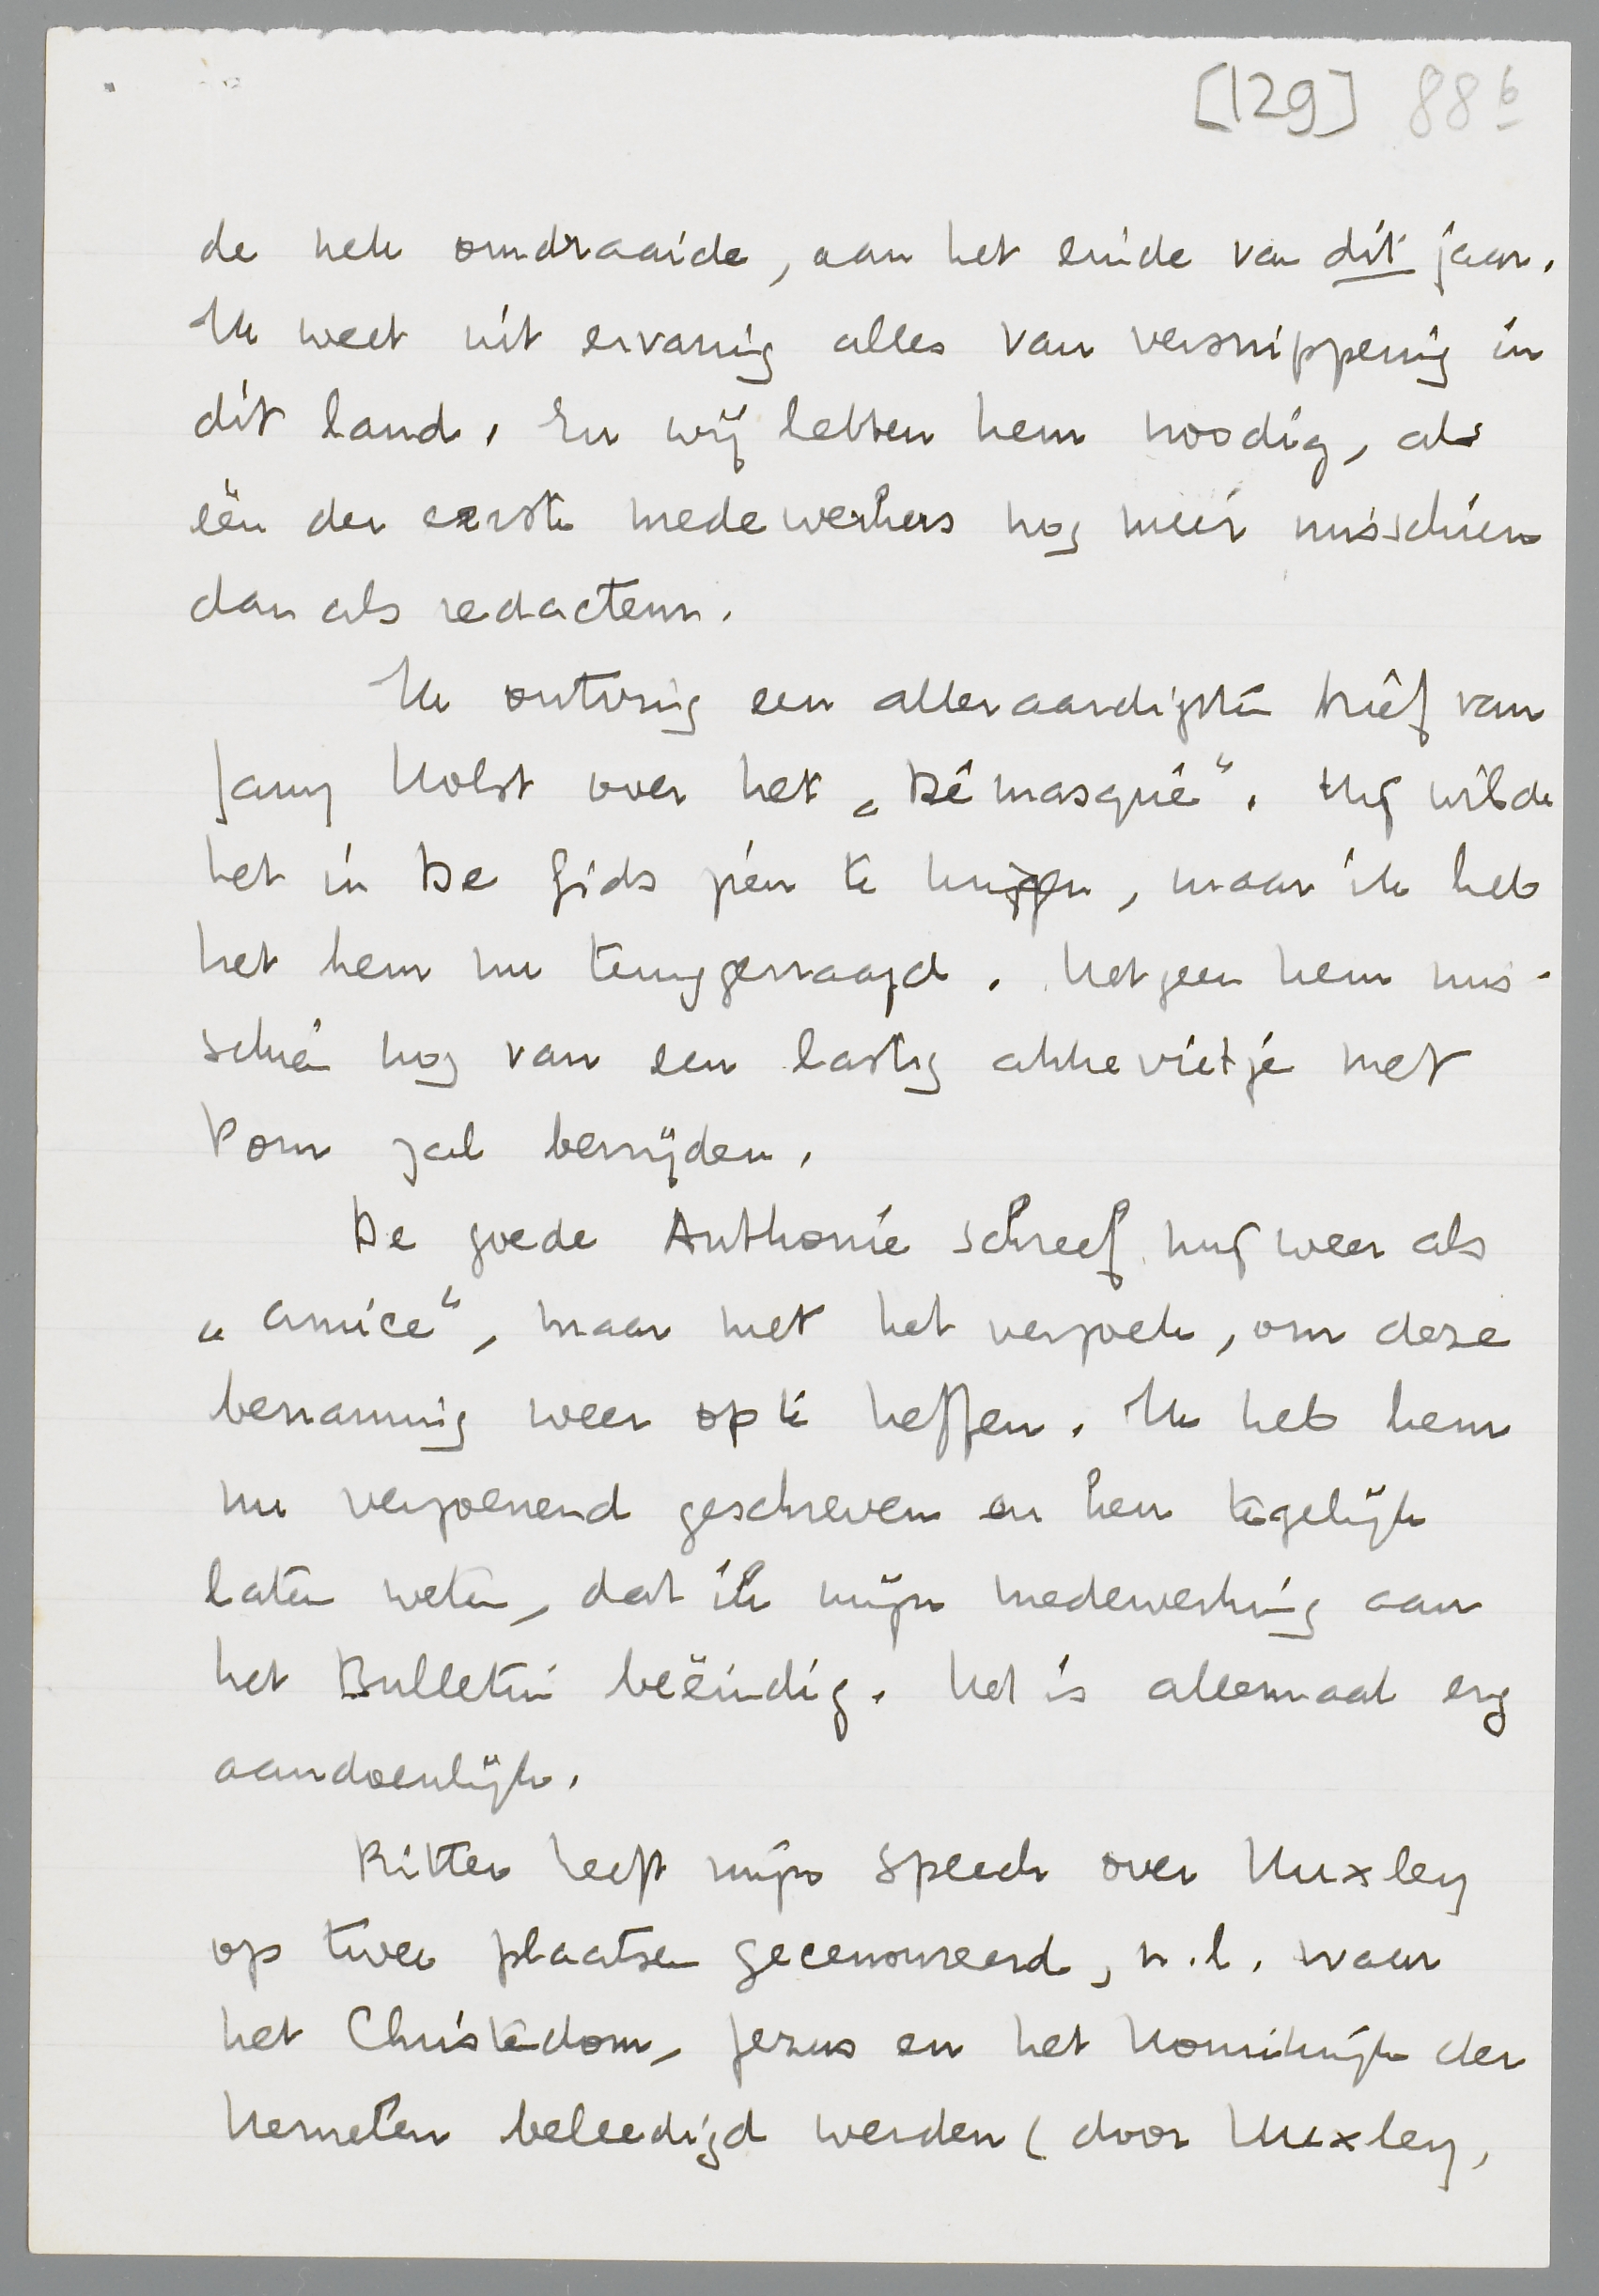 [129] 88b
de nek omdraaide, aan het einde van dit jaar.
Ik weet uit ervaring alles van versnippering in
dit land. En wij hebben hem noodig, als
één der eerste medewerkers nog méér misschien
dan als redacteur.
Ik ontving een alleraardigsten brief van
Jany Holst over het „Démasqué“. Hij wilde
het in De Gids zien te krijgen, maar ik heb
het hem nu teruggevraagd. Hetgeen hem mis-
schien nog van een lastig akkevietje met
Kom zal bevrijden.
De goede Anthonie schreef mij weer als
„amice“, maar met het verzoek, om deze
benaming weer op te heffen. Ik heb hem
nu verzoenend geschreven en hem tegelijk
laten weten, dat ik mijn medewerking aan
het Bulletin beëindig. Het is allemaal erg
aandoenlijk.
Ritter heeft mijn speech over Huxley
op twee plaatsen gecensureerd, n.l. waar
het Christendom, Jezus en het Koninkrijk der
Hemelen beleedigd werden (door Huxley,